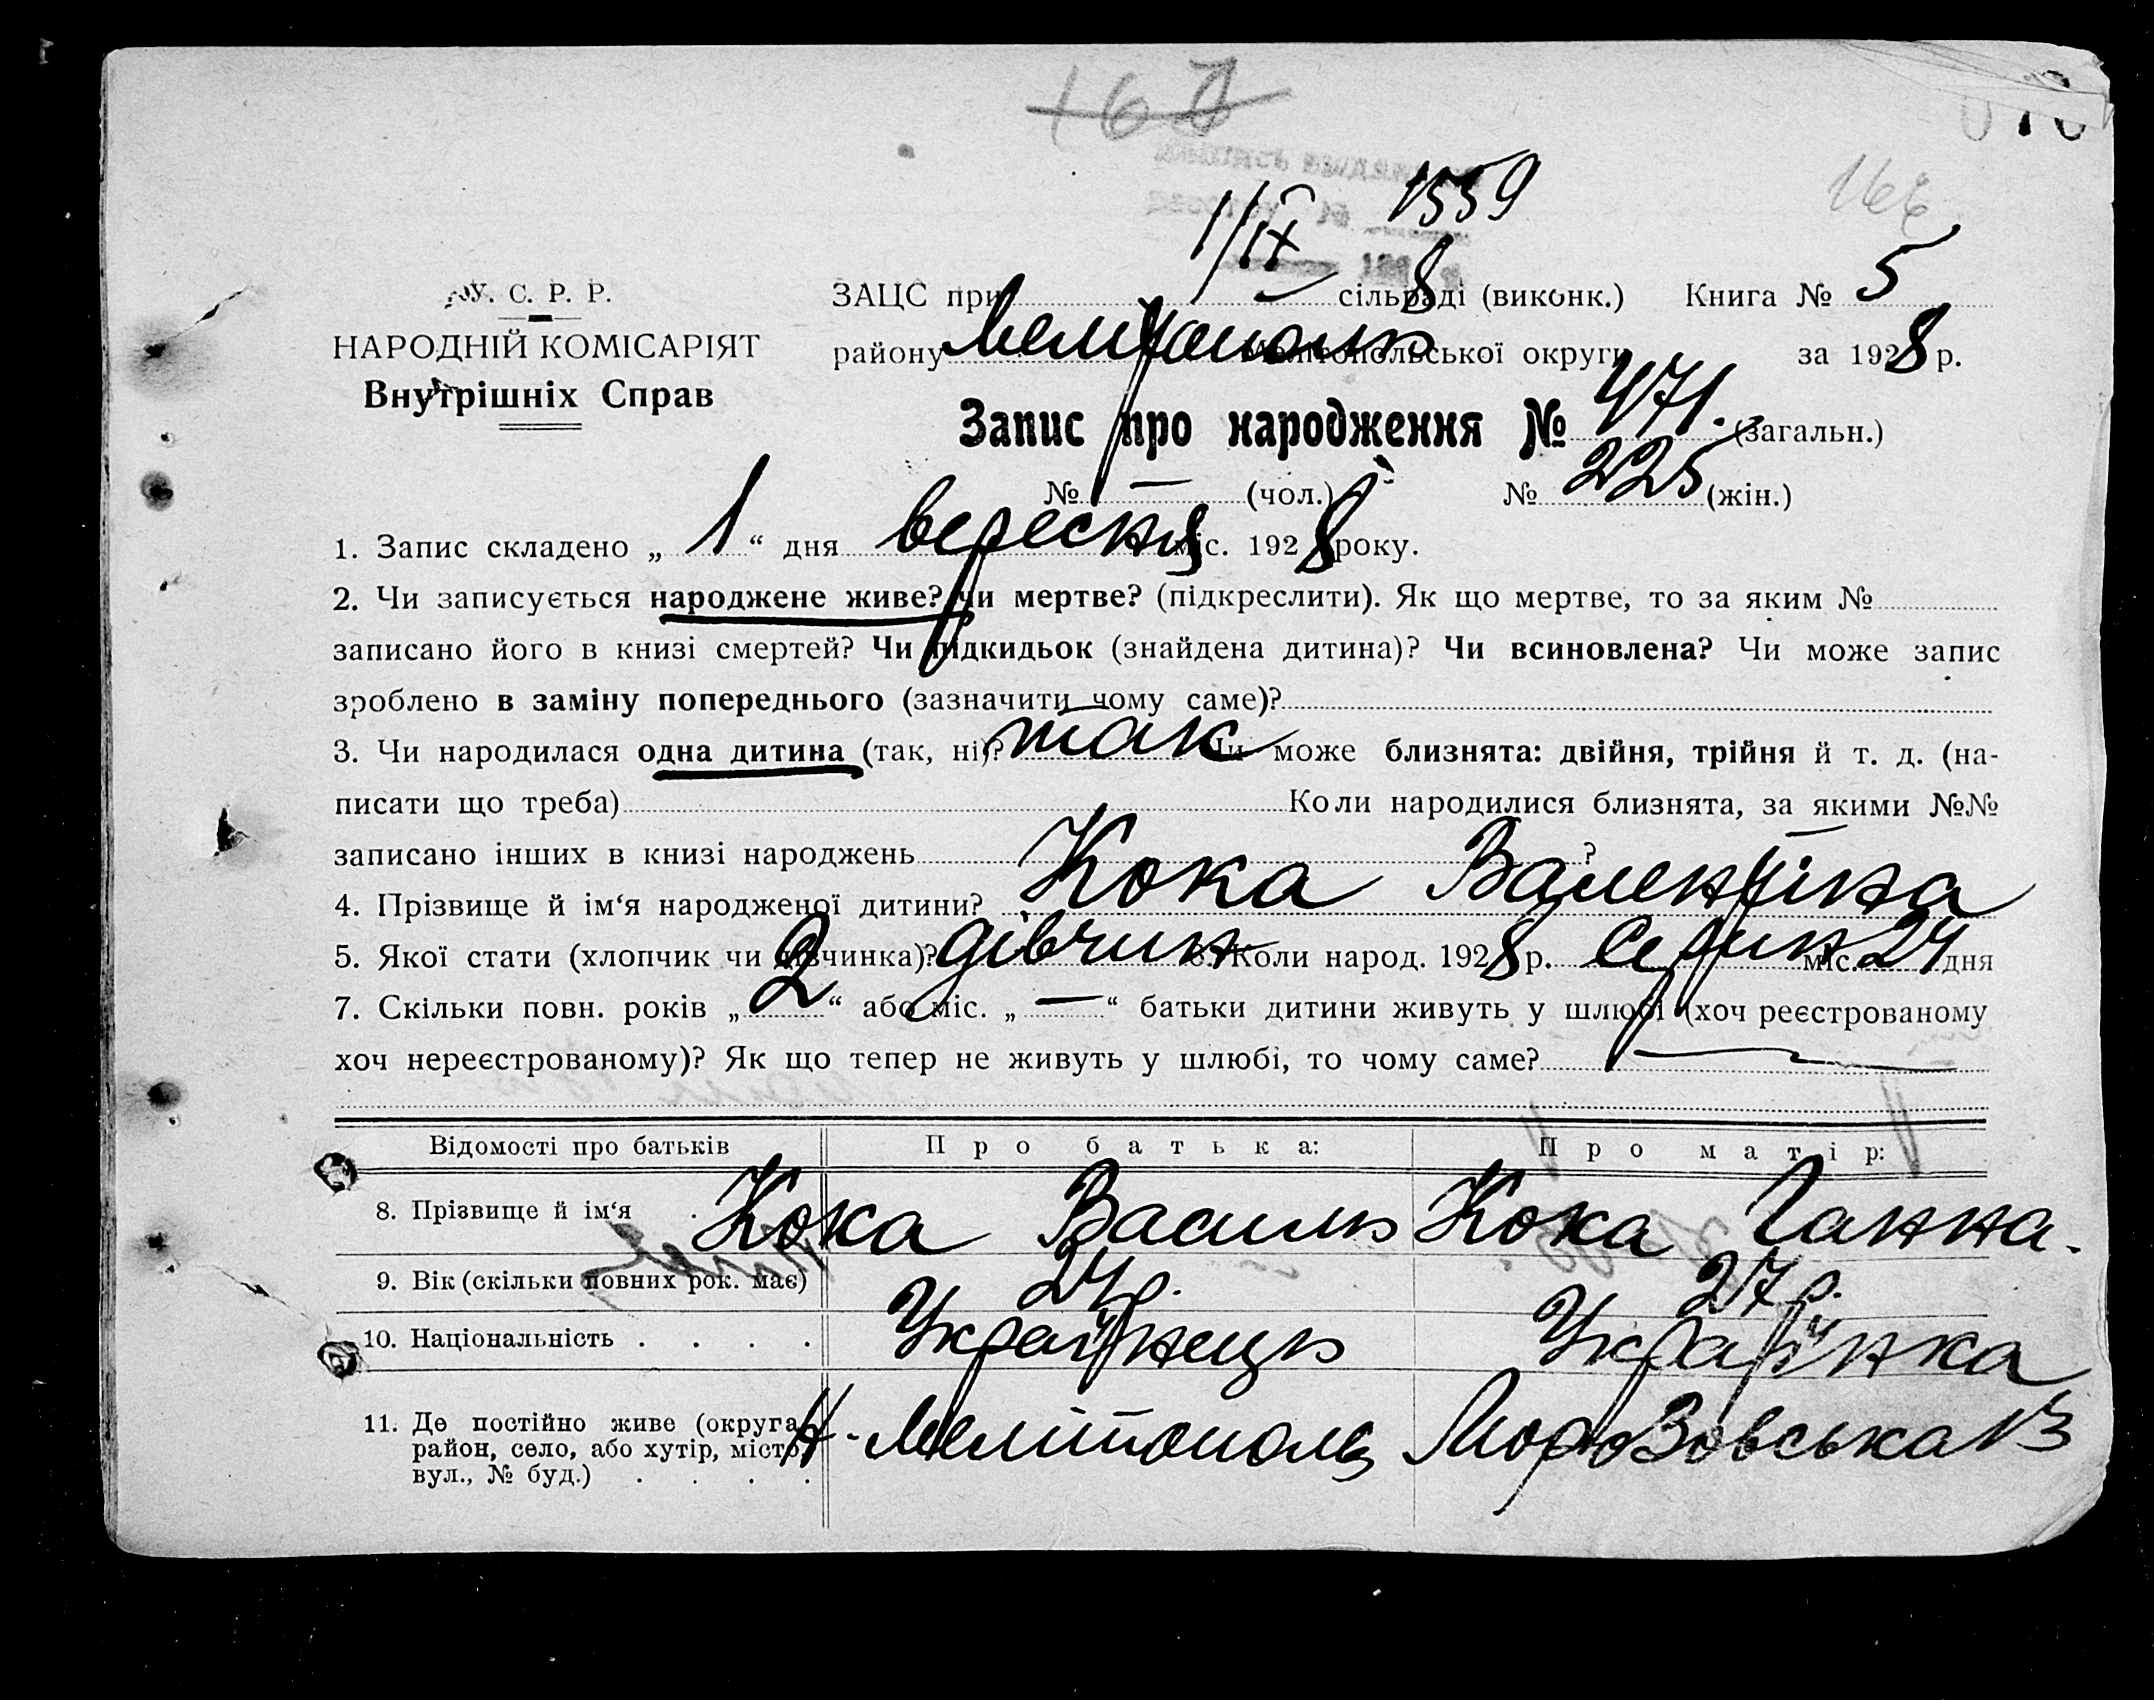 167
1559
1/IX 8
166
У. С. Р. Р.
НАРОДНІЙ КОМІСАРІЯТ
Внутрішніх Справ
ЗАЦС при сільраді (виконк.) Книга № 5
району Мелітополь Мелітопольської округи за 1928 р.
Запис про народження № 471. (загальн.)
№ — (чол.) № 225 (жін.)
1. Запис складено „ 1 “ дня вересня міс. 1928 року.
2. Чи записується народжене живе? чи мертве? (підкреслити). Як що мертве, то за яким №
записано його в книзі смертей? Чи підкидьок (знайдена дитина)? Чи всиновлена? Чи може запис
зроблено в заміну попереднього (зазначити чому саме)?
3. Чи народилася одна дитина (так, ні)? так Чи може близнята: двійня, трійня й т. д. (на-
писати що треба) Коли народилися близнята, за якими №№
записано інших в книзі народжень — ?
4. Прізвище й ім‘я народженої дитини? Кока Валентіна
5. Якої стати (хлопчик чи дівчинка)? дівчин 6. Коли народ. 1928 р. Серпн міс. 24 дня
7. Скільки повн. років „ 2 “ або міс. „ — “ батьки дитини живуть у шлюбі (хоч реєстрованому
хоч нереєстрованому)? Як що тепер не живуть у шлюбі, то чому саме? —
Відомості про батьків Про батька: Про матір:
8. Прізвище й ім‘я . Кока Василь Кока Ганна.
9. Вік (скільки повних рок. має) 24р. 27р.
10. Національність . . . . Українець Українка
11. Де постійно живе (округа, район, село, або хутір, місто, вул., № буд.) . . . . Н-Мелітополь Морозовська 13